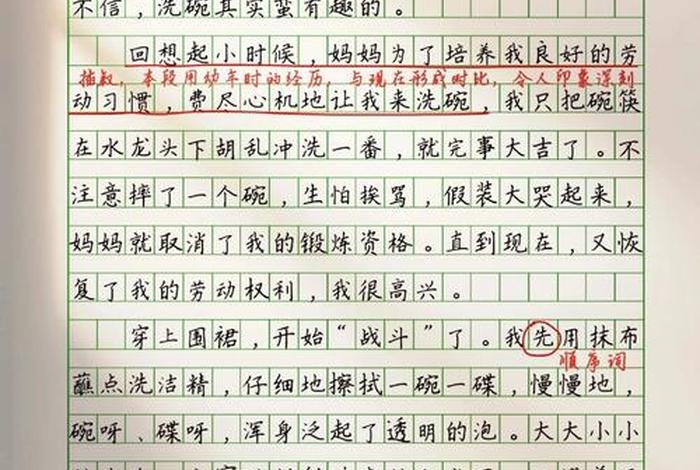 不信，洗碗其实蛮有趣的。
回想起小时候，妈妈为了培养我良好的劳
插叙，本段用幼年时的经历，与现在形成对比，令人印象深刻
动习惯，费尽心机地让我来洗碗，我只把碗筷
在水龙头下胡乱冲洗一番，就完事大吉了。不
注意摔了一个碗，生怕挨骂，假装大哭起来，
妈妈就取消了我的锻炼资格。直到现在，又恢
复了我的劳动权利，我很高兴。
穿上围裙，开始“战斗”了。我先用抹布
顺序词
蘸点洗洁精，仔细地擦拭一碗一碟，慢慢地，
碗呀、碟呀，浑身泛起了透明的泡。大大小小